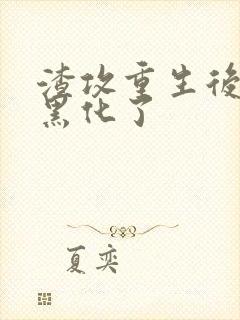 渣攻重生後
黑化了
夏奕